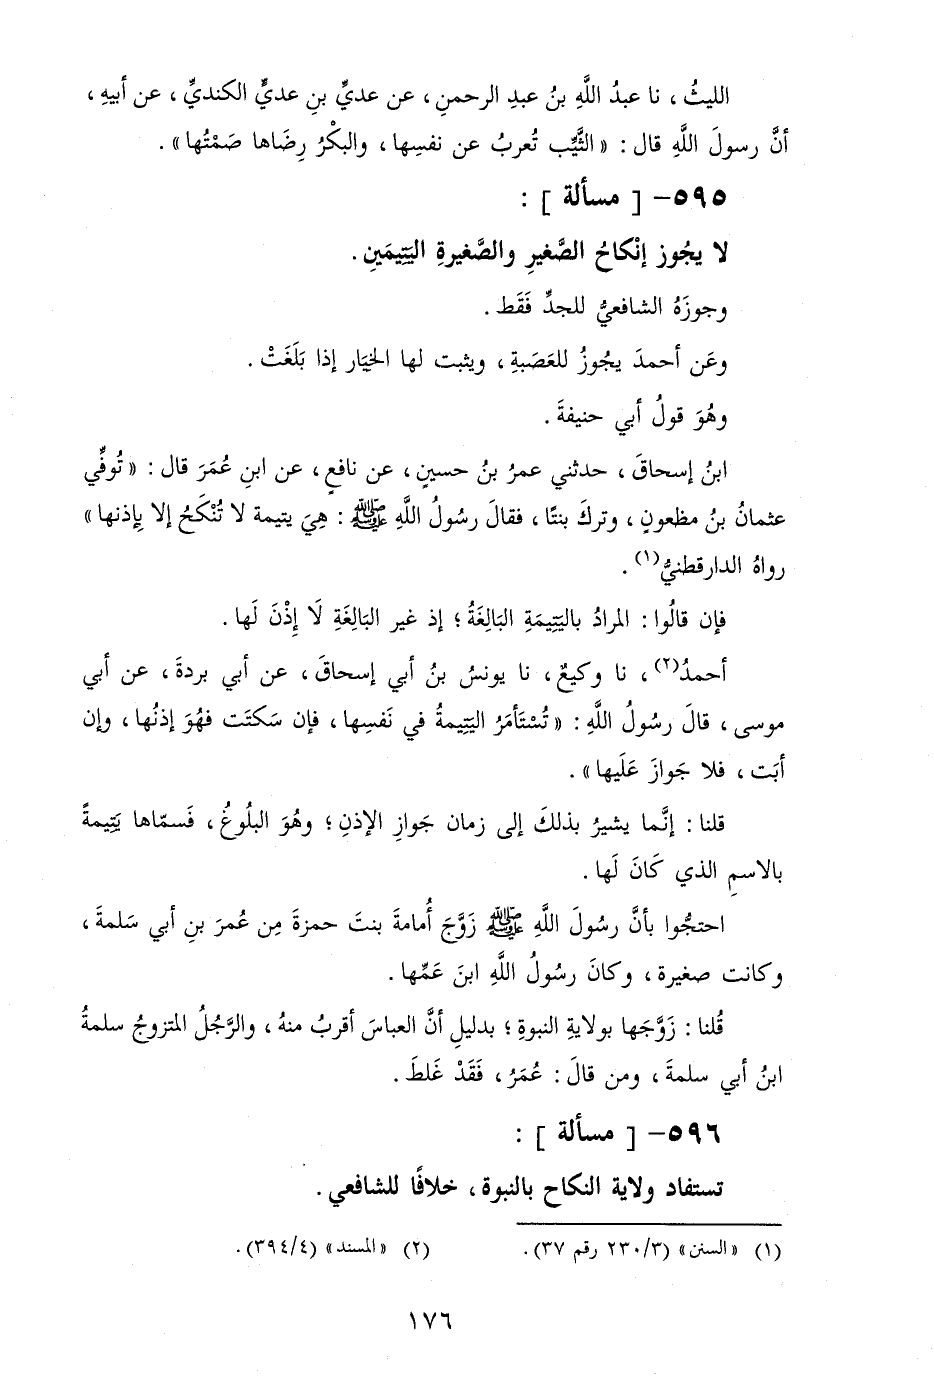 الليثُ ، نا عبدُ اللَّهِ بنُ عبدِ الرحمنِ ، عن عديٍّ بنِ عديٍّ الكنديٍّ ، عن أبيهِ ،
أنَّ رسولَ اللَّهِ قال : « الثَّيِّب تُعربُ عن نفسِها ، والبكْرُ رِضَاها صَمْتُها » .
٥٩٥– [ مسألة ] :
لا يجُوز إنْكاحُ الصَّغيرِ والصَّغيرةِ اليَتِيمَينِ .
وجوزَهُ الشافعيُّ للجدِّ فَقَط .
وعَن أحمدَ يجُوزُ للعَصَبةِ ، ويثبت لها الخيَار إذا بَلَغَتْ .
وهُوَ قولُ أبي حنيفةَ .
ابنُ إسحاقَ ، حدثني عمرُ بنُ حسينٍ ، عن نافعٍ ، عن ابنِ عُمَرَ قال : « تُوفِّي
عثمانُ بنُ مظعونٍ ، وتركَ بنتًا ، فقالَ رسُولُ اللَّهِ ﷺ : هِيَ يتيمة لا تُنْكَحُ إلا بِإذنها »
رواهُ الدارقطنيُّ(١) .
فإن قالُوا : المرادُ باليَتِيمَةِ البَالِغَةُ ؛ إذ غير البَالِغَةِ لَا إِذْنَ لَها .
أحمدُ(٢) ، نا وكيعٌ ، نا يونسُ بنُ أبي إسحاقَ ، عن أبي بردةَ ، عن أبي
موسى ، قالَ رسُولُ اللَّهِ : « تُسْتَأمَرُ اليَتِيمةُ في نَفسِها ، فإن سَكتَت فهُوَ إذنُها ، وإن
أبَت ، فلا جَوازَ عَلَيها » .
قلنا : إنَّما يشيرُ بذلكَ إلى زمان جَوازِ الإذنِ ؛ وهُوَ البلُوغُ ، فَسمّاها يَتِيمةً
بالاسمِ الذي كَانَ لَها .
احتجُّوا بأنَّ رسُولَ اللَّهِ ﷺ زَوَّجَ أُمامةَ بنتَ حمزةَ مِن عُمرَ بنِ أبي سَلمةَ ،
وكانت صغيرة ، وكانَ رسُولُ اللَّهِ ابنَ عَمِّها .
قُلنا : زَوَّجَها بولايةِ النبوةِ ؛ بدليلِ أنَّ العباسَ أقربُ منهُ ، والرَّجُلُ المتزوجُ سلمةُ
ابنُ أبي سلمةَ ، ومن قالَ : عُمَرُ ، فَقَدْ غَلطَ .
٥٩٦– [ مسألة ] :
تستفاد ولاية النكاح بالنبوة ، خلافًا للشافعي .
(١) « السنن » (٢٣٠/٣ رقم ٣٧) . (٢) « المسند » (٣٩٤/٤) .
١٧٦